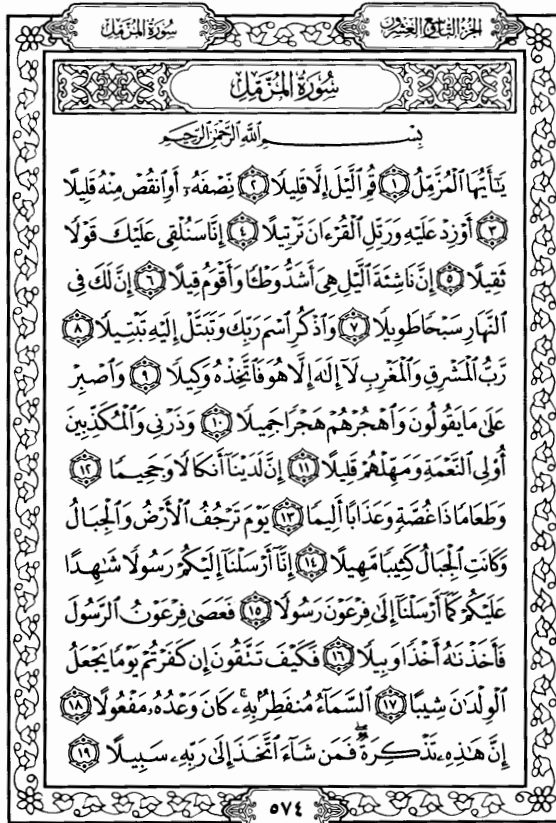 سُورَةُ المُزَّمِّل
الجُزْءُ التَّاسِعُ وَالعِشْرُون
سُورَةُ المُزَّمِّلِ
بِسْمِ اللَّهِ الرَّحْمَٰنِ الرَّحِيمِ
يَٰٓأَيُّهَا الْمُزَّمِّلُ ١ قُمِ الَّيْلَ إِلَّا قَلِيلًا ٢ نِّصْفَهُۥٓ أَوِ انقُصْ مِنْهُ قَلِيلًا
٣ أَوْ زِدْ عَلَيْهِ وَرَتِّلِ الْقُرْءَانَ تَرْتِيلًا ٤ إِنَّا سَنُلْقِى عَلَيْكَ قَوْلًا
ثَقِيلًا ٥ إِنَّ نَاشِئَةَ الَّيْلِ هِىَ أَشَدُّ وَطْـًٔا وَأَقْوَمُ قِيلًا ٦ إِنَّ لَكَ فِى
النَّهَارِ سَبْحًا طَوِيلًا ٧ وَاذْكُرِ اسْمَ رَبِّكَ وَتَبَتَّلْ إِلَيْهِ تَبْتِيلًا ٨
رَّبُّ الْمَشْرِقِ وَالْمَغْرِبِ لَآ إِلَٰهَ إِلَّا هُوَ فَاتَّخِذْهُ وَكِيلًا ٩ وَاصْبِرْ
عَلَىٰ مَا يَقُولُونَ وَاهْجُرْهُمْ هَجْرًا جَمِيلًا ١٠ وَذَرْنِى وَالْمُكَذِّبِينَ
أُو۟لِى النَّعْمَةِ وَمَهِّلْهُمْ قَلِيلًا ١١ إِنَّ لَدَيْنَآ أَنكَالًا وَجَحِيمًا ١٢
وَطَعَامًا ذَا غُصَّةٍ وَعَذَابًا أَلِيمًا ١٣ يَوْمَ تَرْجُفُ الْأَرْضُ وَالْجِبَالُ
وَكَانَتِ الْجِبَالُ كَثِيبًا مَّهِيلًا ١٤ إِنَّآ أَرْسَلْنَآ إِلَيْكُمْ رَسُولًا شَٰهِدًا
عَلَيْكُمْ كَمَآ أَرْسَلْنَآ إِلَىٰ فِرْعَوْنَ رَسُولًا ١٥ فَعَصَىٰ فِرْعَوْنُ الرَّسُولَ
فَأَخَذْنَٰهُ أَخْذًا وَبِيلًا ١٦ فَكَيْفَ تَتَّقُونَ إِن كَفَرْتُمْ يَوْمًا يَجْعَلُ
الْوِلْدَٰنَ شِيبًا ١٧ السَّمَآءُ مُنفَطِرٌۢ بِهِۦ ۚ كَانَ وَعْدُهُۥ مَفْعُولًا ١٨
إِنَّ هَٰذِهِۦ تَذْكِرَةٌ ۖ فَمَن شَآءَ اتَّخَذَ إِلَىٰ رَبِّهِۦ سَبِيلًا ١٩
٥٧٤